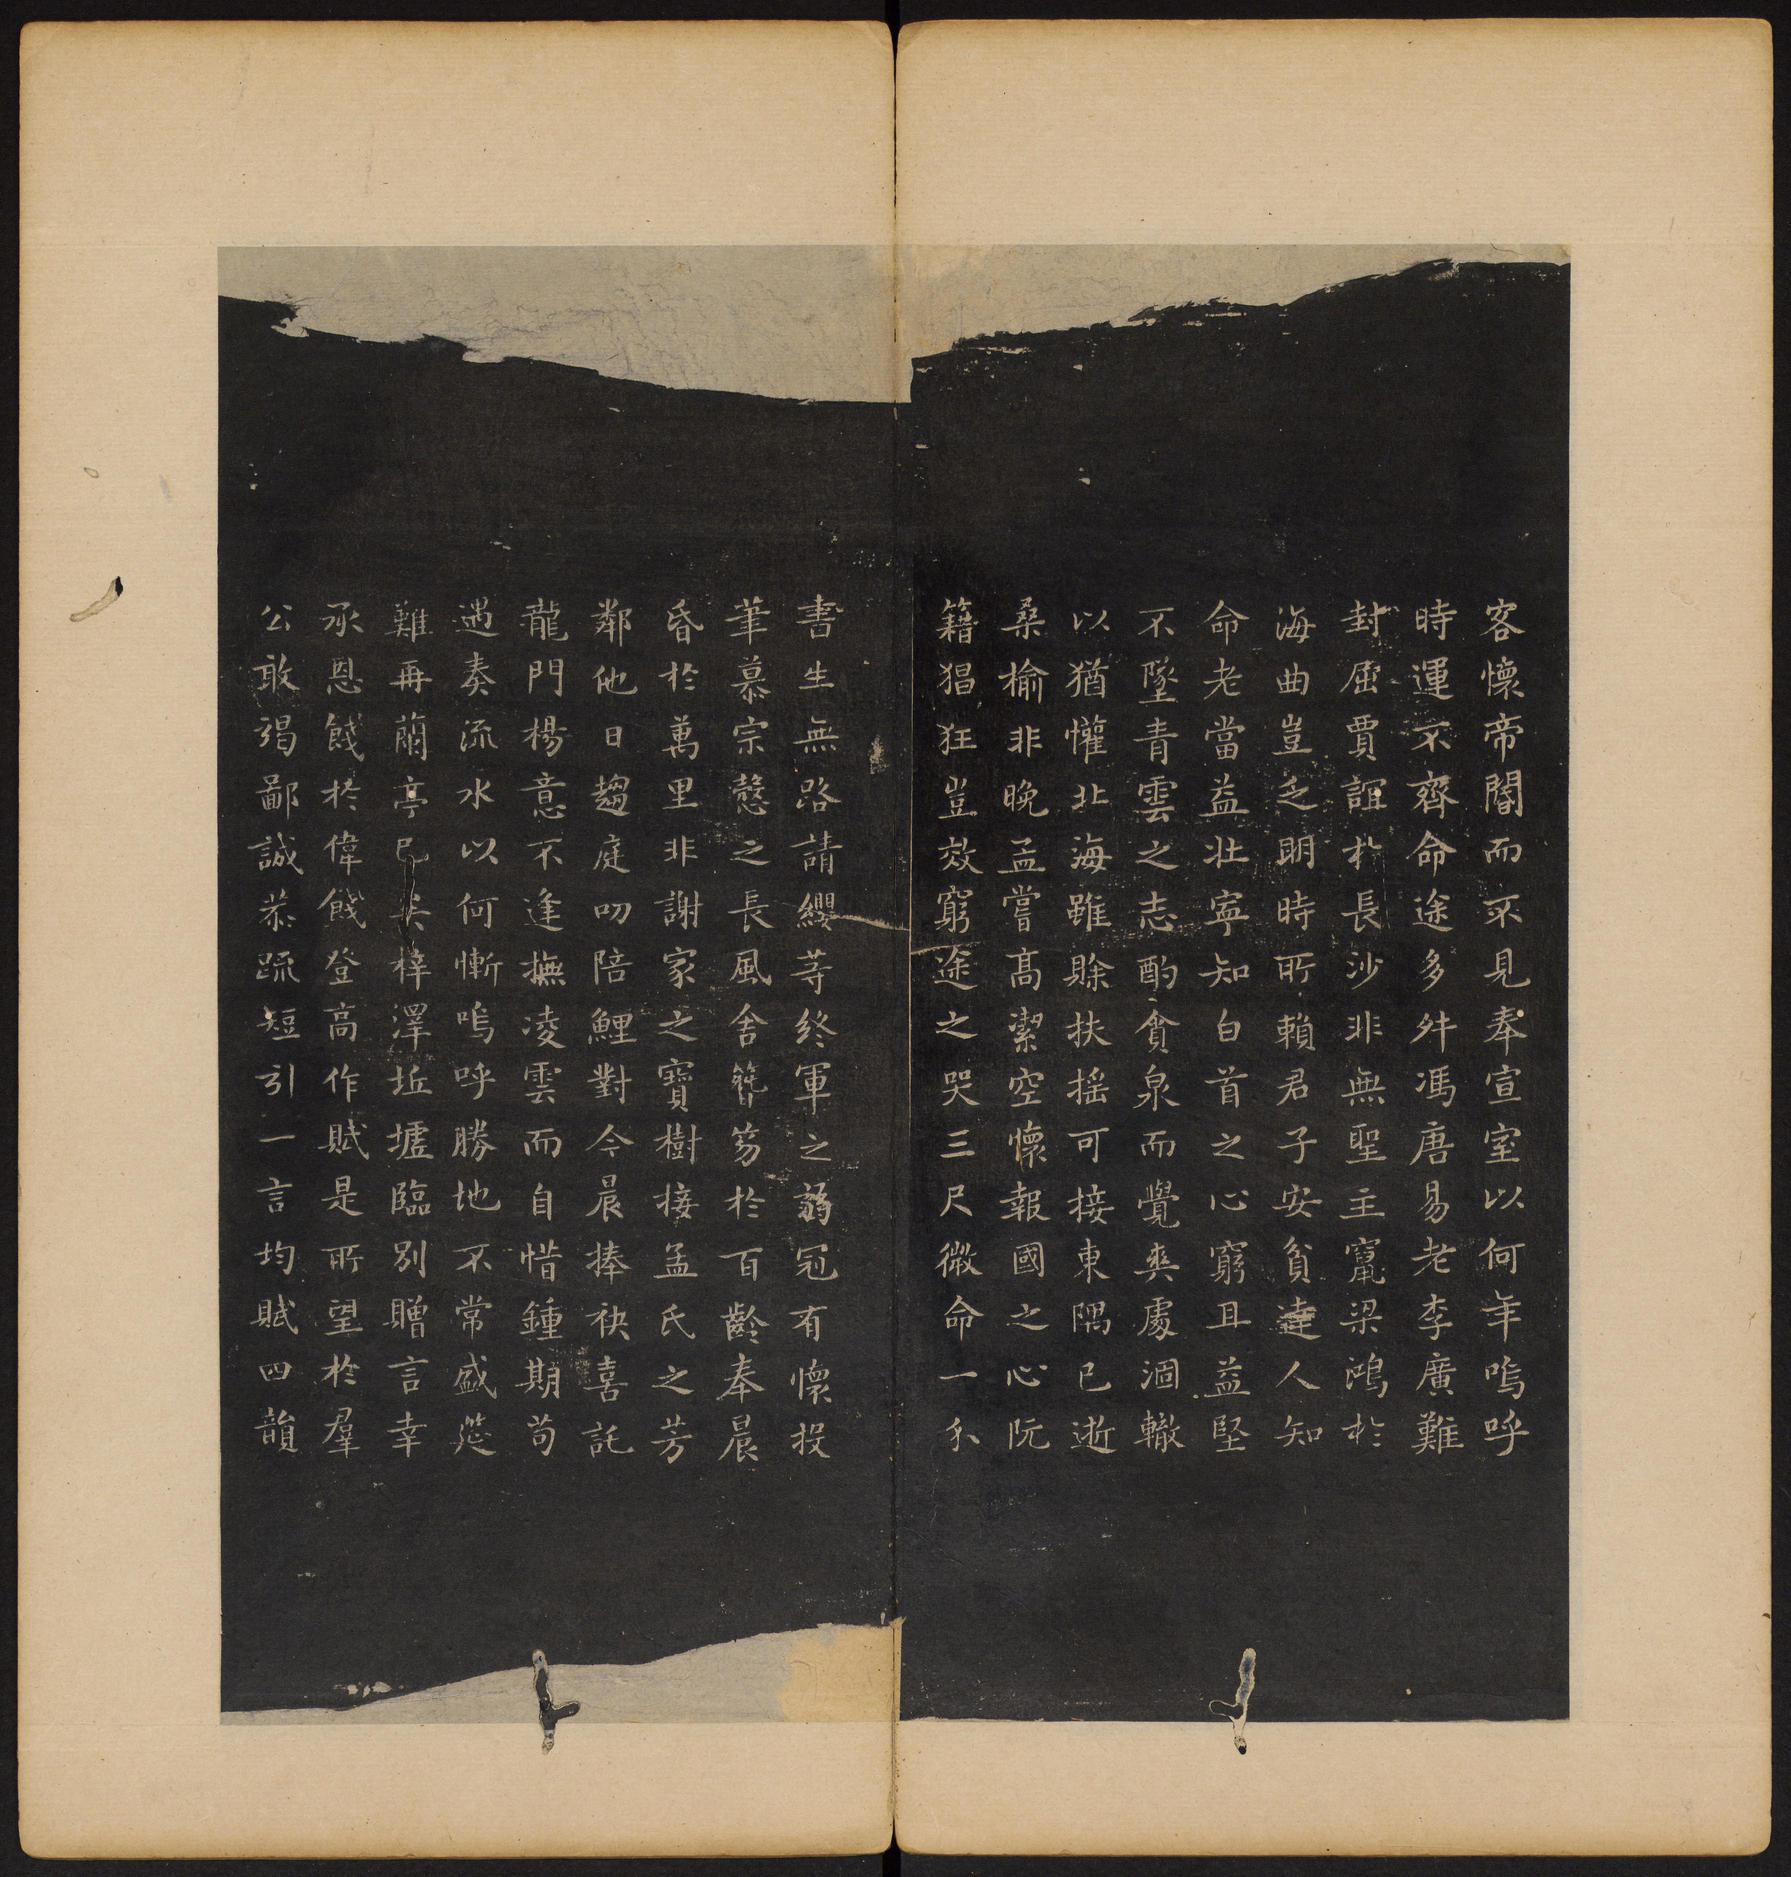 客懷帝閽而不見奉宣室以何年嗚呼
時運不齊命途多舛馮唐易老李廣難
封屈賈誼於長沙非無聖主竄梁鴻於
海曲豈乏明時所賴君子安貧達人知
命老當益壯寧知白首之心窮且益堅
不墜青雲之志酌貪泉而覺爽處涸轍
以猶懽北海雖賒扶搖可接東隅已逝
桑榆非晚孟嘗髙潔空懷報國之心阮
籍猖狂豈效窮途之哭三尺微命一介
書生無路請纓等終軍之弱冠有懷投
筆慕宗慤之長風舍簪笏於百齡奉晨
昏於萬里非謝家之寶樹接孟氏之芳
鄰他日趨庭叨陪鯉對今晨捧袂喜託
龍門楊意不逢撫凌雲而自惜鍾期苟
遇奏流水以何慚嗚呼勝地不常盛筵
難再蘭亭已矣梓澤坵墟臨別贈言幸
承恩餞於偉餞登高作賦是所望於羣
公敢竭鄙誠恭疏短引一言均賦四韻